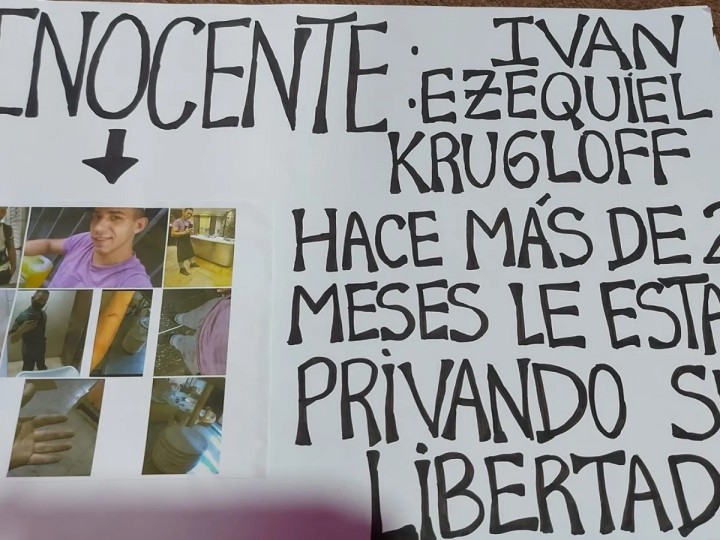 INOCENTE: IVAN
EZEQUIEL
KRUGLOFF
HACE MÁS DE 2
MESES LE ESTA
PRIVANDO SU
LIBERTAD